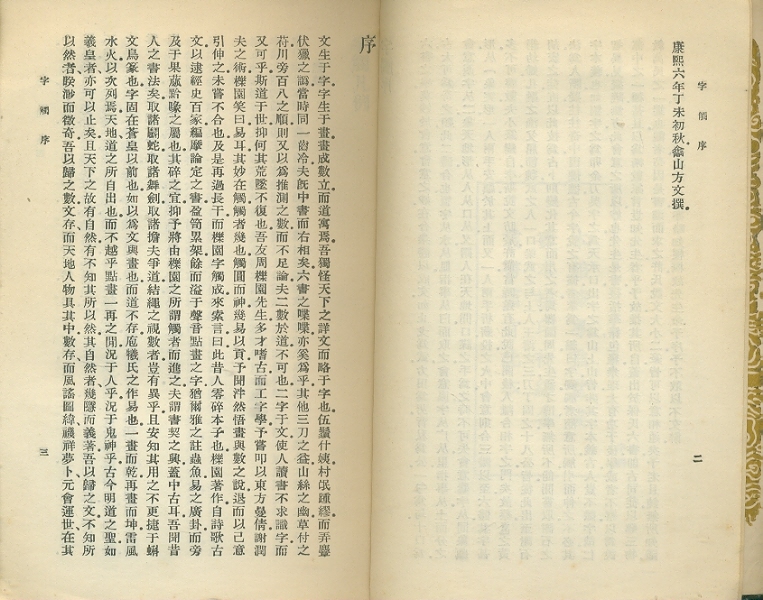 字觸序
康熙六年丁未初秋龠山方文撰。
二
序
文生于字字生于畫畫成數立而道寓焉。吾獨怪天下之詳文而略于字也伍
伏獵之譌當時同一齒冷夫旣中書而右相矣六書之喋喋亦奚爲乎其他三刀之益山絲之幽草付之
苻川旁百八之順則又以爲推測之數而不足論夫二數於道不可也二字于文使人讀書不求識字而
又可乎斯道于世抑何其荒墜不復也吾友周櫟園先生多才嗜古而工字學予嘗叩以東方曼倩謝潤
夫之術櫟園笑曰易耳其妙在觸觸者幾也觸圓而神幾易以貢予聞泮然悟畫與數之說退而以己意
引伸之未嘗不合也及是再過長干而櫟園字觸成來索言曰此昔人零碎本子也櫟園著作自詩歌古
文以逮經史百家編摩論定之書盈笥累架餘而溢于聲音點畫之字猶爾雅之註蟲魚易之廣卦而旁
及于果蓏黔喙之屬也其碎之宜抑予將由櫟園之所謂觸者而進之夫謂書契之興蓋中古耳吾聞昔
人之書法矣取諸鬭蛇取諸舞劍取諸擔夫爭道結繩之視數者豈有異乎且安知其用之不更捷于蝌
文鳥篆也字固在蒼皇以前也如以爲文與畫也而道不存庖犧氏之作易也一畫而乾再畫而坤雷風
水火以次列焉天地道之所自出也而不越乎點畫一再之閒況于人乎況于鬼神乎古今明道之聖如
羲皇者亦可以止矣且天下之故有自然有不知其所以然其自然者幾隱而義著吾以歸之文不知所
以然者睽渺而徵奇吾以歸之數文存而天地人物具其中數存而風謠圖緯禨祥夢卜元會運世在其
字觸序
三